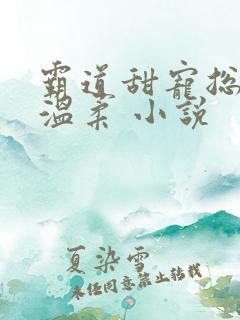 霸道甜寵總
溫柔 小說
夏染雪
未任同意禁止转载